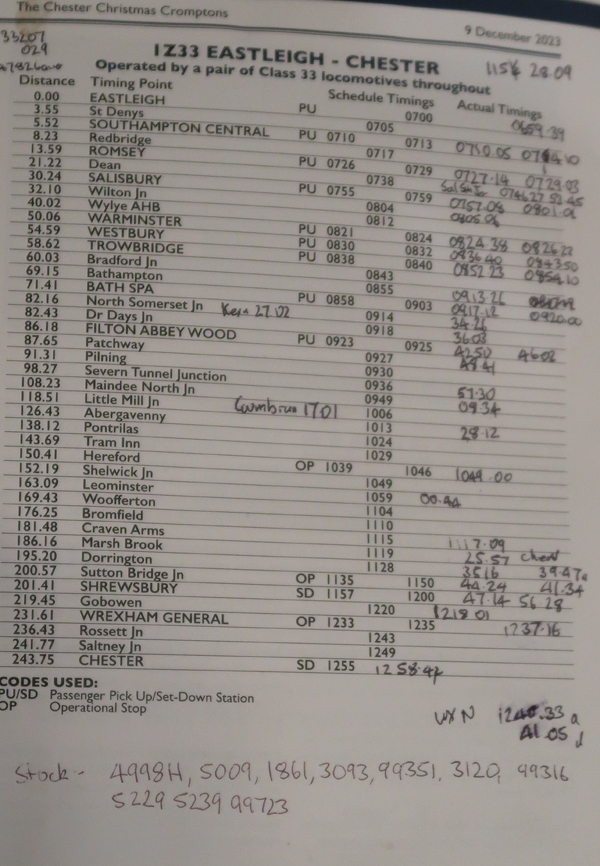 The Chester Christmas Cromptons
9 December 2023
33207
029
1Z33 EASTLEIGH - CHESTER 115¼ 28.09
Operated by a pair of Class 33 locomotives throughout
Distance Timing Point Schedule Timings Actual Timings
0.00 EASTLEIGH PU 0700 0659.39
3.55 St Denys 0705
5.52 SOUTHAMPTON CENTRAL PU 0710 0713 0710.05
8.23 Redbridge 0717
13.59 ROMSEY PU 0726 0729 0727.14 0729.03
21.22 Dean 0738
30.24 SALISBURY PU 0755 0759 0757.08 0801.01
32.10 Wilton Jn 0804
40.02 Wylye AHB 0812
50.06 WARMINSTER PU 0821 0824 0824.38 0826.22
54.59 WESTBURY PU 0830 0832 0836.40 0843.50
58.62 TROWBRIDGE PU 0838 0840 0852.23 0854.10
60.03 Bradford Jn 0843
69.15 Bathampton 0855
71.41 BATH SPA PU 0858 0903 0917.12 0920.00
82.16 North Somerset Jn 0914 34.26
82.43 Dr Days Jn 0918 36.03
86.18 FILTON ABBEY WOOD PU 0923 0925 42.50 46.02
87.65 Patchway 0927
91.31 Pilning 0930
98.27 Severn Tunnel Junction 0936 57.30
108.23 Maindee North Jn 0949 09.34
118.51 Little Mill Jn 1006
126.43 Abergavenny 1013 28.12
138.12 Pontrilas 1024
143.69 Tram Inn 1029
150.41 Hereford OP 1039 1046 1049.00
152.19 Shelwick Jn 1049
163.09 Leominster 1059 00.44
169.43 Woofferton 1104
176.25 Bromfield 1110
181.48 Craven Arms 1115 1117.09
186.16 Marsh Brook 1119 25.57
195.20 Dorrington 1128 35.16 39.47a
200.57 Sutton Bridge Jn OP 1135 1150 44.24 41.34
201.41 SHREWSBURY SD 1157 1200 47.14 56.28
219.45 Gobowen 1220 1218 01
231.61 WREXHAM GENERAL OP 1233 1235 1237.16
236.43 Rossett Jn 1243
241.77 Saltney Jn 1249
243.75 CHESTER SD 1255 1258.42
CODES USED:
PU/SD Passenger Pick Up/Set-Down Station
OP Operational Stop
WXN 1240.33 a
41.05 d
Stock:- 4998H, 5009, 1861, 3093, 99351, 3120, 99316
5229 5239 99723